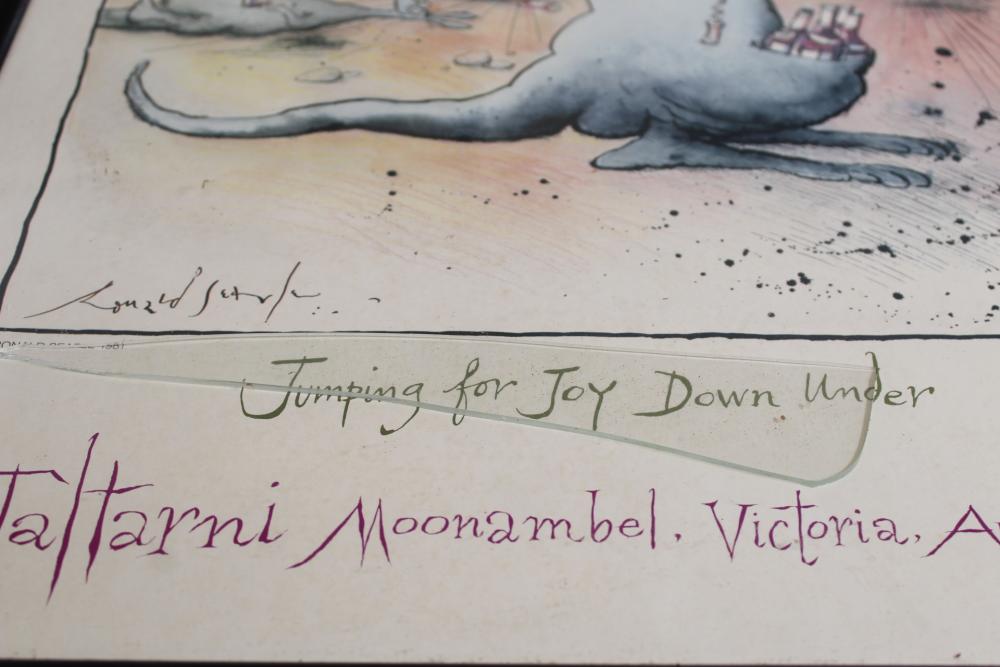 Ronald Searle
1981
Jumping for Joy Down Under
Taltarni Moonambel, Victoria,